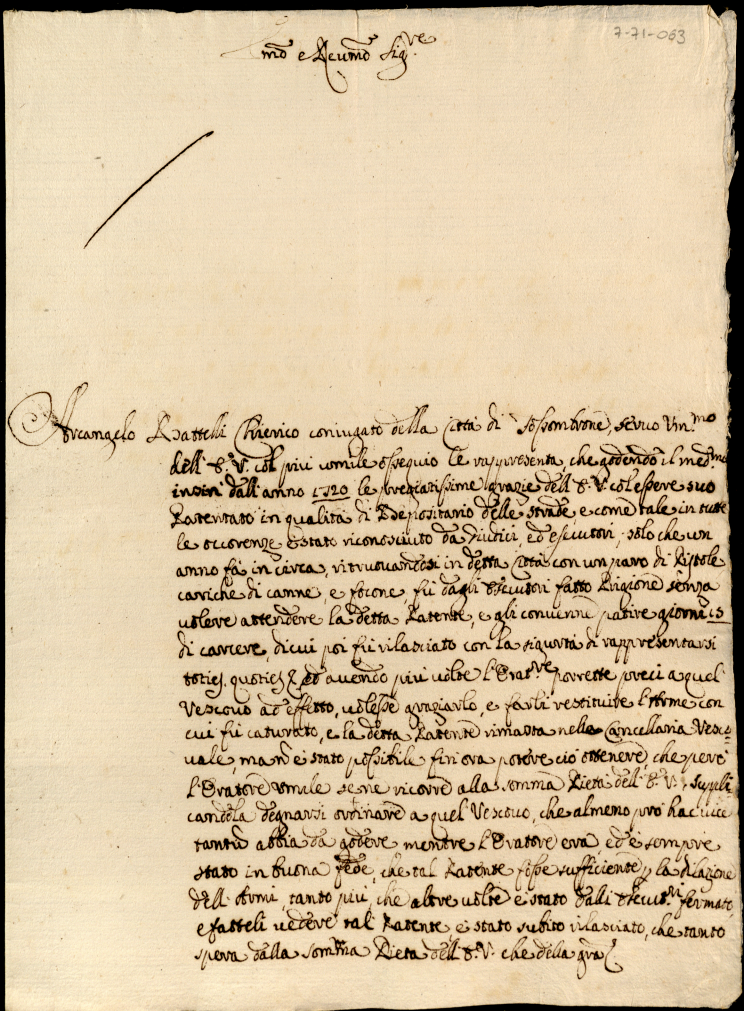 7-71-063
mo e Reumo Sig.re
Arcangelo Battelli Chierico coniugato della Città di Fossombrone, servo Um.mo
dell' S. V. col più umile ossequio le rappresenta, che godendo il med.mo
insin dall' anno 1720 le pregiatissime grazie dell' S. V. col essere suo
Patentato in qualità di Depositario delle strade, e come tale in tutte
le occorenze è stato riconosciuto da Giudici, ed esecutori, solo che un
anno fà in circa, ritruovandosi in detta Città con un paro di Pistole
carriche di canne, e focone, fù dagli Esecutori fatto Prigione senza
volere attendere la detta Patente, e gli convenne patire giorni 15
di carcere, di cui poi fù rilasciato con la sigurtà di rappresentarsi
toties quoties ed avendo più volte l'Orat.re porrette preci a quel
Vescovo ad effetto, volesse graziarlo, e farli restituire l'Arme con
cui fù caturato, e la detta Patente rimasta nella Cancellaria Vesco-
vale, mai è stato possibile fin ora potere ciò ottenere, che però
l'Oratore umile se ne ricorre alla somma Pietà dell' S. V. suppli-
candola degnarsi ordinare a quel Vescovo, che almeno pro hac vice
tantu abbia da godere mentre l'Oratore era, ed è sempre
stato in buona fede, che tal Patente fosse sufficiente la dilazione
dell' Armi, tanto più, che altre volte è stato dalli Esecut.ri fermato,
e fatteli vedere tal Patente, è stato subito rilasciato, che tanto
spera dalla somma Pieta dell' S. V. che della gra